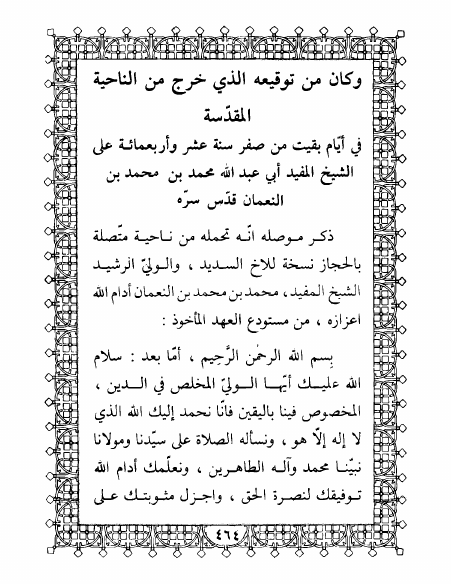 وكان من توقيعه الذي خرج من الناحية
المقدّسة
في أيّام بقيت من صفر سنة عشر وأربعمائة على
الشيخ المفيد أبي عبد الله محمد بن محمد بن
النعمان قدّس سرّه
ذكر موصله انّه تحمله من ناحية متّصلة
بالحجاز نسخة للاخ السديد ، والوليّ الرشيد
الشيخ المفيد ، محمد بن محمد بن النعمان أدام الله
اعزازه ، من مستودع العهد المأخوذ :
بِسم الله الرحمٰن الرَّحيم ، أمّا بعد : سلام
الله عليك أيّها الوليّ المخلص في الدين ،
المخصوص فينا باليقين فانّا نحمد إليك الله الذي
لا إله إلّا هو ، ونسأله الصلاة على سيّدنا ومولانا
نبيّنا محمد وآله الطاهرين ، ونعلّمك أدام الله
توفيقك لنصرة الحق ، واجزل مثوبتك على
٤٦٤